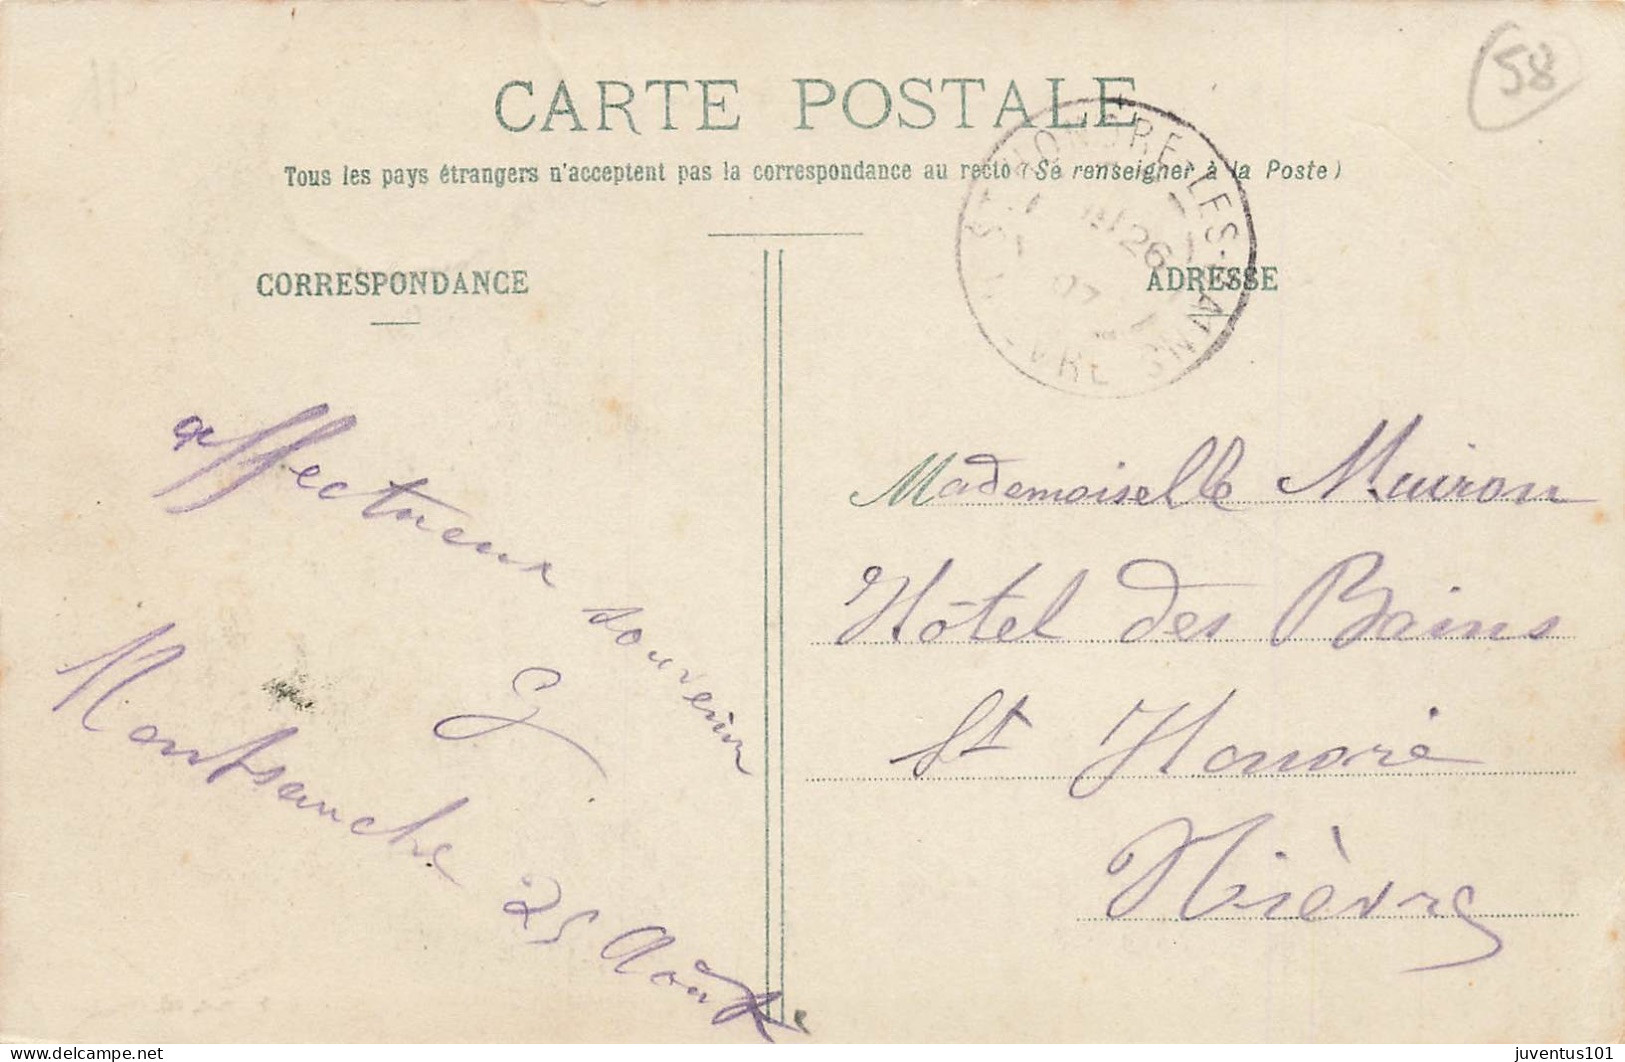 58
CARTE POSTALE
Tous les pays étrangers n'acceptent pas la correspondance au recto (Se renseigner à la Poste)
CORRESPONDANCE
ADRESSE
ST HONORÉ-LES-BAINS
26
07
affectueux souvenir
Montsauche 25 Août
Mademoiselle Muiron
Hôtel des Bains
St Honoré
Nièvre
delcampe.net
juventus101